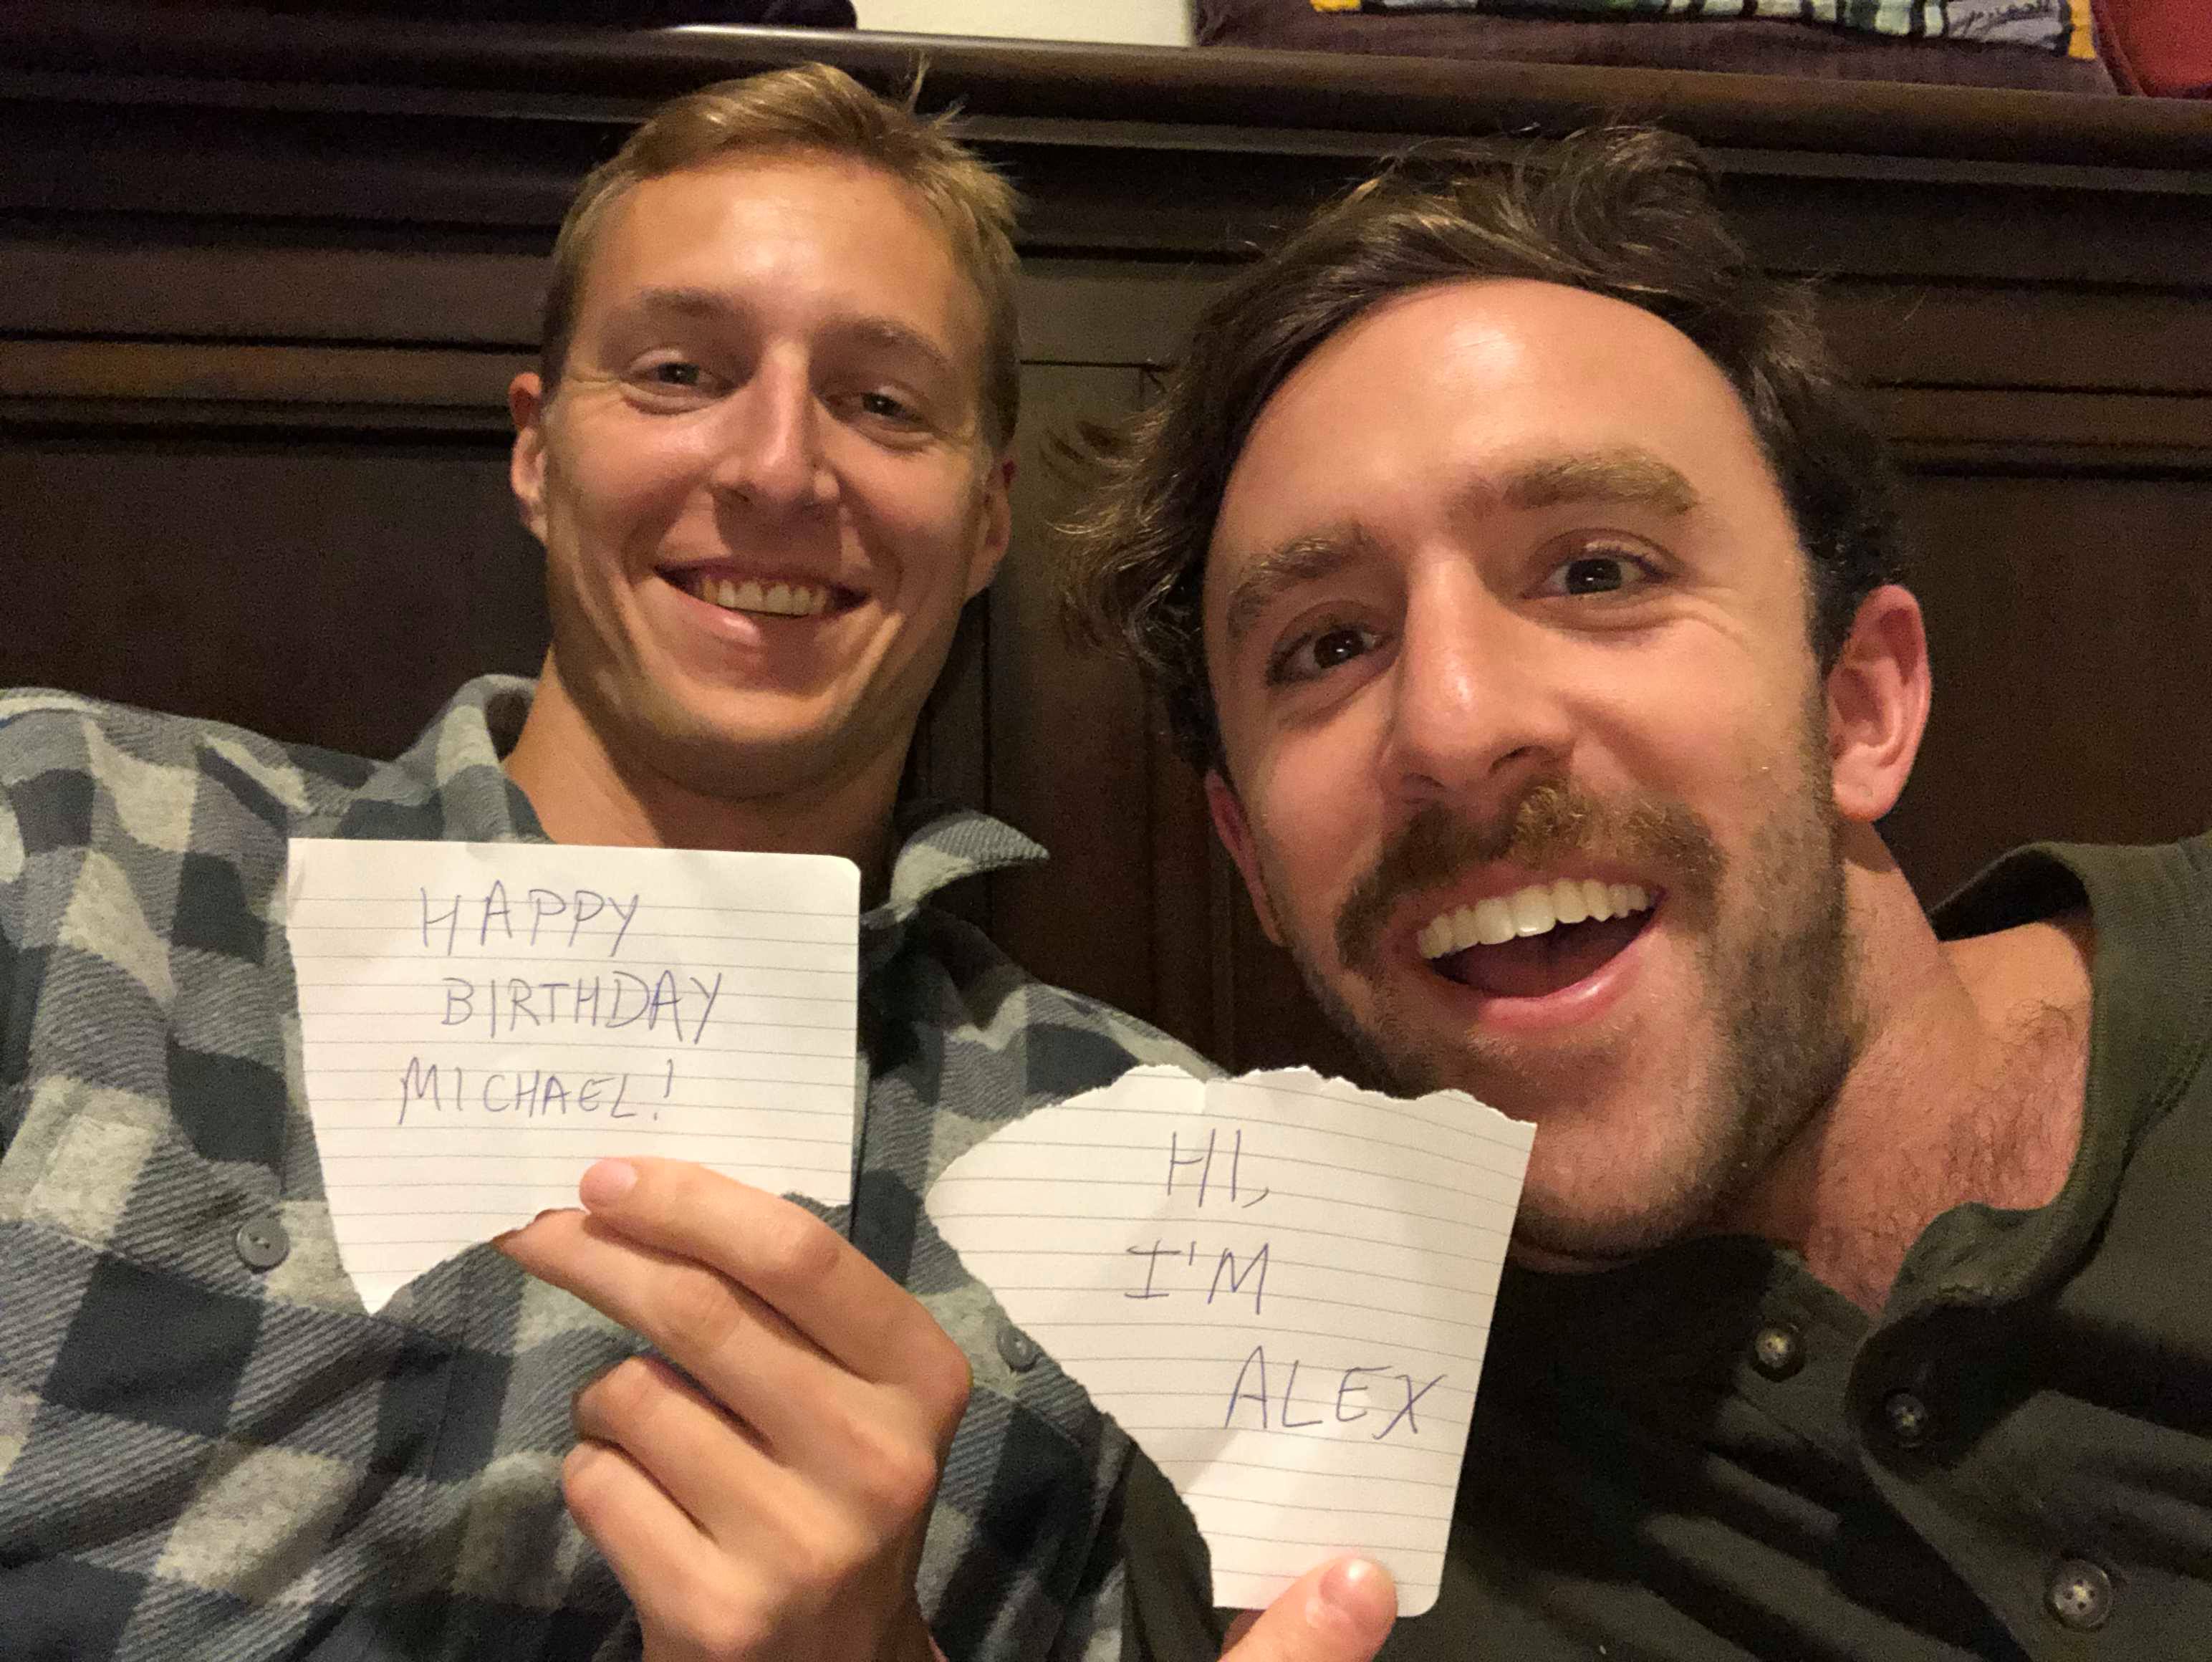 HAPPY
BIRTHDAY
MICHAEL!
HI,
I'M
ALEX